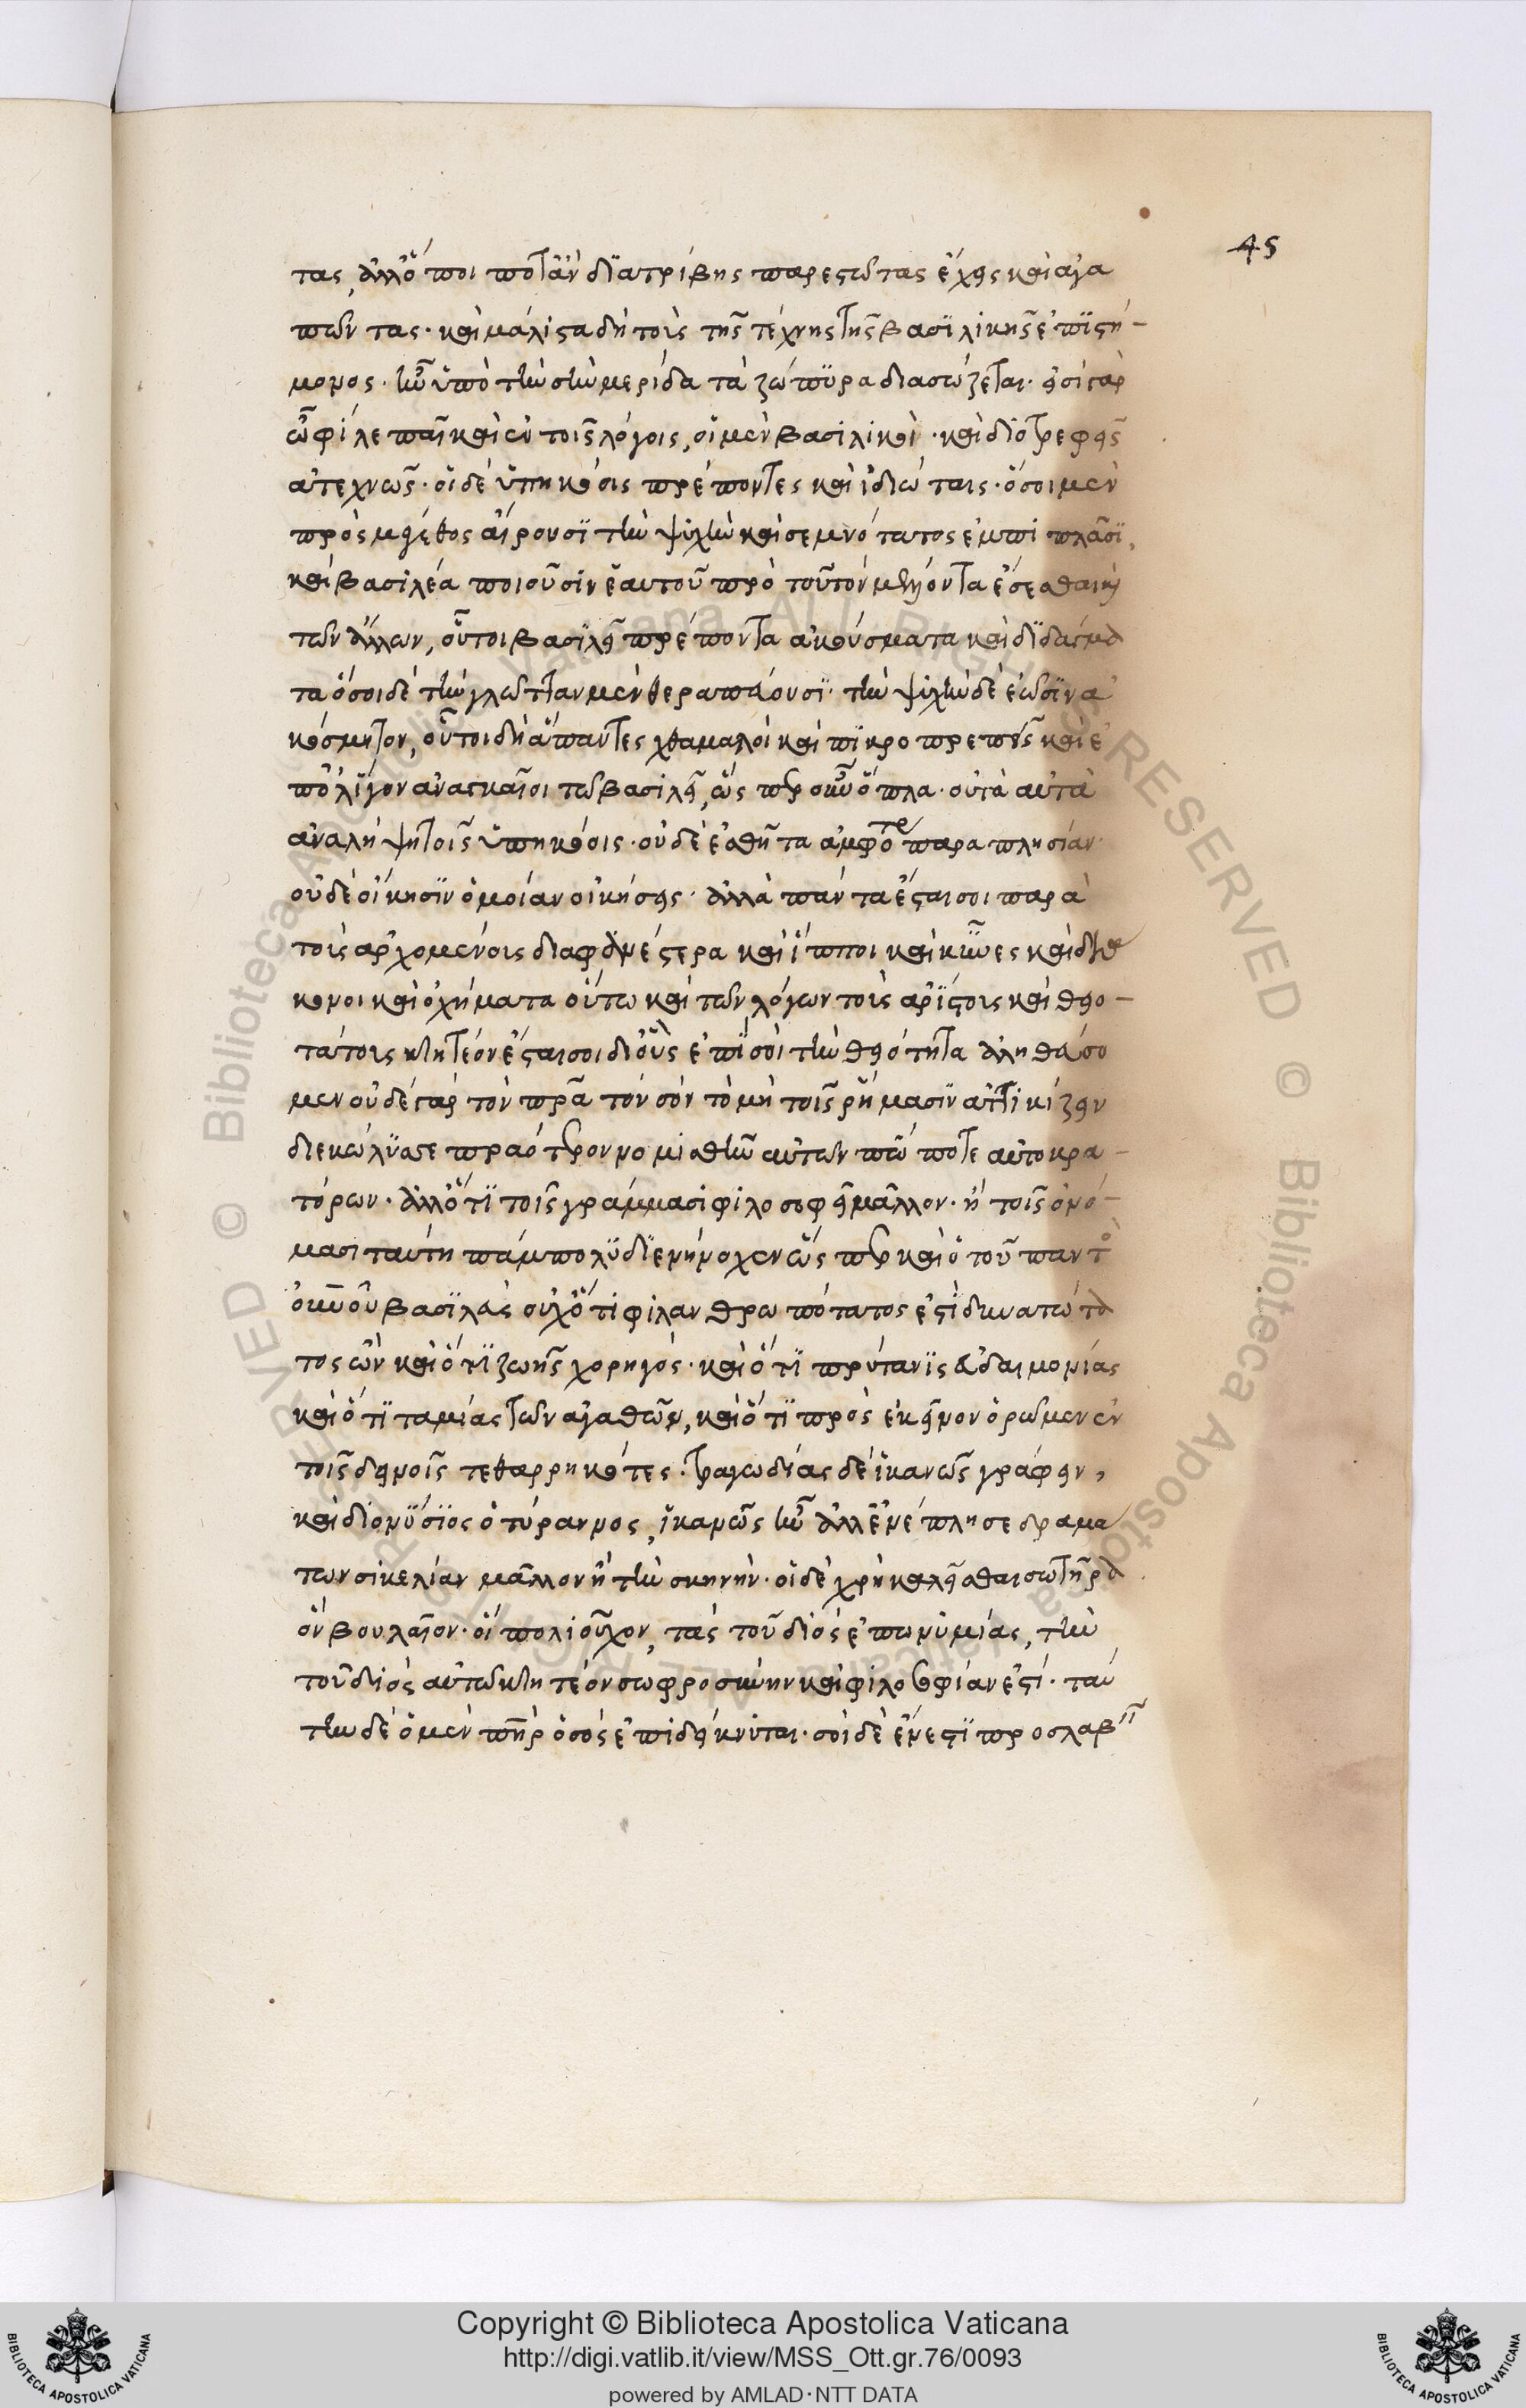 45
τας, ἀλλ' ὅποι ποτ' ἂν διατρίβης παρεστῶτας ἕχεις καὶ ἀγα
πῶντας· καὶ μάλιστα δὴ τοὺς τῆς τέχνης τῆς βασιλικῆς ἐπιστή-
μονος· ἣν ὑπὸ τὴν σὴν μερίδα τὰ ζώπυρα διασώζεται· εἰσὶ γὰρ
ὦ φίλε παῖ καὶ ἐν τοῖς λόγοις, οἱ μὲν βασιλικοὶ· καὶ διοτρεφεῖς
ἀτεχνῶς· οἱ δὲ ὑπηκόοις πρέποντες καὶ ἰδιώταις· ὅσοι μὲν
πρὸς μέγεθος αἴρουσι τὴν ψυχὴν καὶ σεμνότατος ἐμπιπλᾶσι,
καὶ βασιλέα ποιοῦσιν ἑαυτοῦ πρὸ τοῦ τὸν μέλλοντα ἔσεσθαι καὶ
τῶν ἄλλων, οὗτοι βασιλεῖ πρέποντα ἀκούσματα καὶ διδάγμα
τα ὅσοι δὲ τὴν γλῶτταν μὲν θεραπεύουσι· τὴν ψυχὴν δὲ ἐῶσιν ἀ
κόσμητον, οὗτοι δὴ ἅπαντες χθαμαλοὶ καὶ πικροπρεπεῖς καὶ ἐ
π' ὀλίγον ἀναγκαῖοι τῷ βασιλεῖ, ὥσπερ οὖν ὅπλα· οὐ τὰ αὐτὰ
ἀναλήψη τοῖς ὑπηκόοις· οὐδὲ ἐσθῆτα ἀμφότε παραπλησίαν·
οὐδὲ οἴκησιν ὁμοίαν οἰκήσεις· ἀλλὰ πάντα ἔσται σοι παρὰ
τοὺς ἀρχομένους διαφανέστερα καὶ ἵπποι καὶ κύνες καὶ διά
κονοι καὶ ὀχήματα οὕτω καὶ τῶν λόγων τοὺς ἀρίστους καὶ θειο-
τάτους κλητέον ἔσται σοι δι' οὓς ἐπὶ σοὶ τὴν θειότητα ἀληθεύσο
μεν οὐδὲ γὰρ τὸν πρᾶτον σὸν τὸ μὴ τοῖς ῥήμασιν ἀττικίζειν
διεκώλυσε πραότερον νομισθῆν αὐτῶν πώποτε αὐτοκρα-
τόρων· ἀλλ' ὅτι τοῖς γράμμασι φιλοσοφεῖ μᾶλλον· ἢ τοῖς ὀνό-
μασι ταύτη πάμπολυ διενήνοχεν ὥσπερ καὶ ὁ τοῦ παντὸ
ὁκοῦν οὖν βασιλεὺς οὐχ' ὅτι φιλανθρωπότατος ἐστὶ δυνατώτα
τος ὢν καὶ ὅτι ζωῆς χορηγὸς· καὶ ὅτι πρύτανις εὐδαιμονίας
καὶ ὅτι ταμίας τῶν ἀγαθῶν, καὶ ὅτι πρὸς ἐκεῖνον ὁρῶμεν ἐν
τοῖς δεινοῖς τεθαρρηκότες· τραγωδίας δὲ ἱκανῶς γράφειν,
καὶ διονύσιος ὁ τύραννος, ἱκανῶς ἦν ἀλλ' ἐνέπλησε δραμα
των σικελίαν μᾶλλον ἢ τὴν σκηνήν· οἱ δὲ χρὴ καλεῖσθαι σωτῆρα
ὃν βουλαῖον· οἱ πολιοῦχον, τὰς τοῦ διὸς ἐπωνυμίας, τὴν
τοῦ διὸς αὐτῶ κλητέον σωφροσύνην καὶ φιλοσοφίαν ἐστί· ταύ
την δὲ ὁ μὲν πῆρ ὁ σὸς ἐπιδείκνυται· σοὶ δὲ ἔνεστι προσλαβεῖ
Copyright © Biblioteca Apostolica Vaticana
http://digi.vatlib.it/view/MSS_Ott.gr.76/0093
powered by AMLAD·NTT DATA